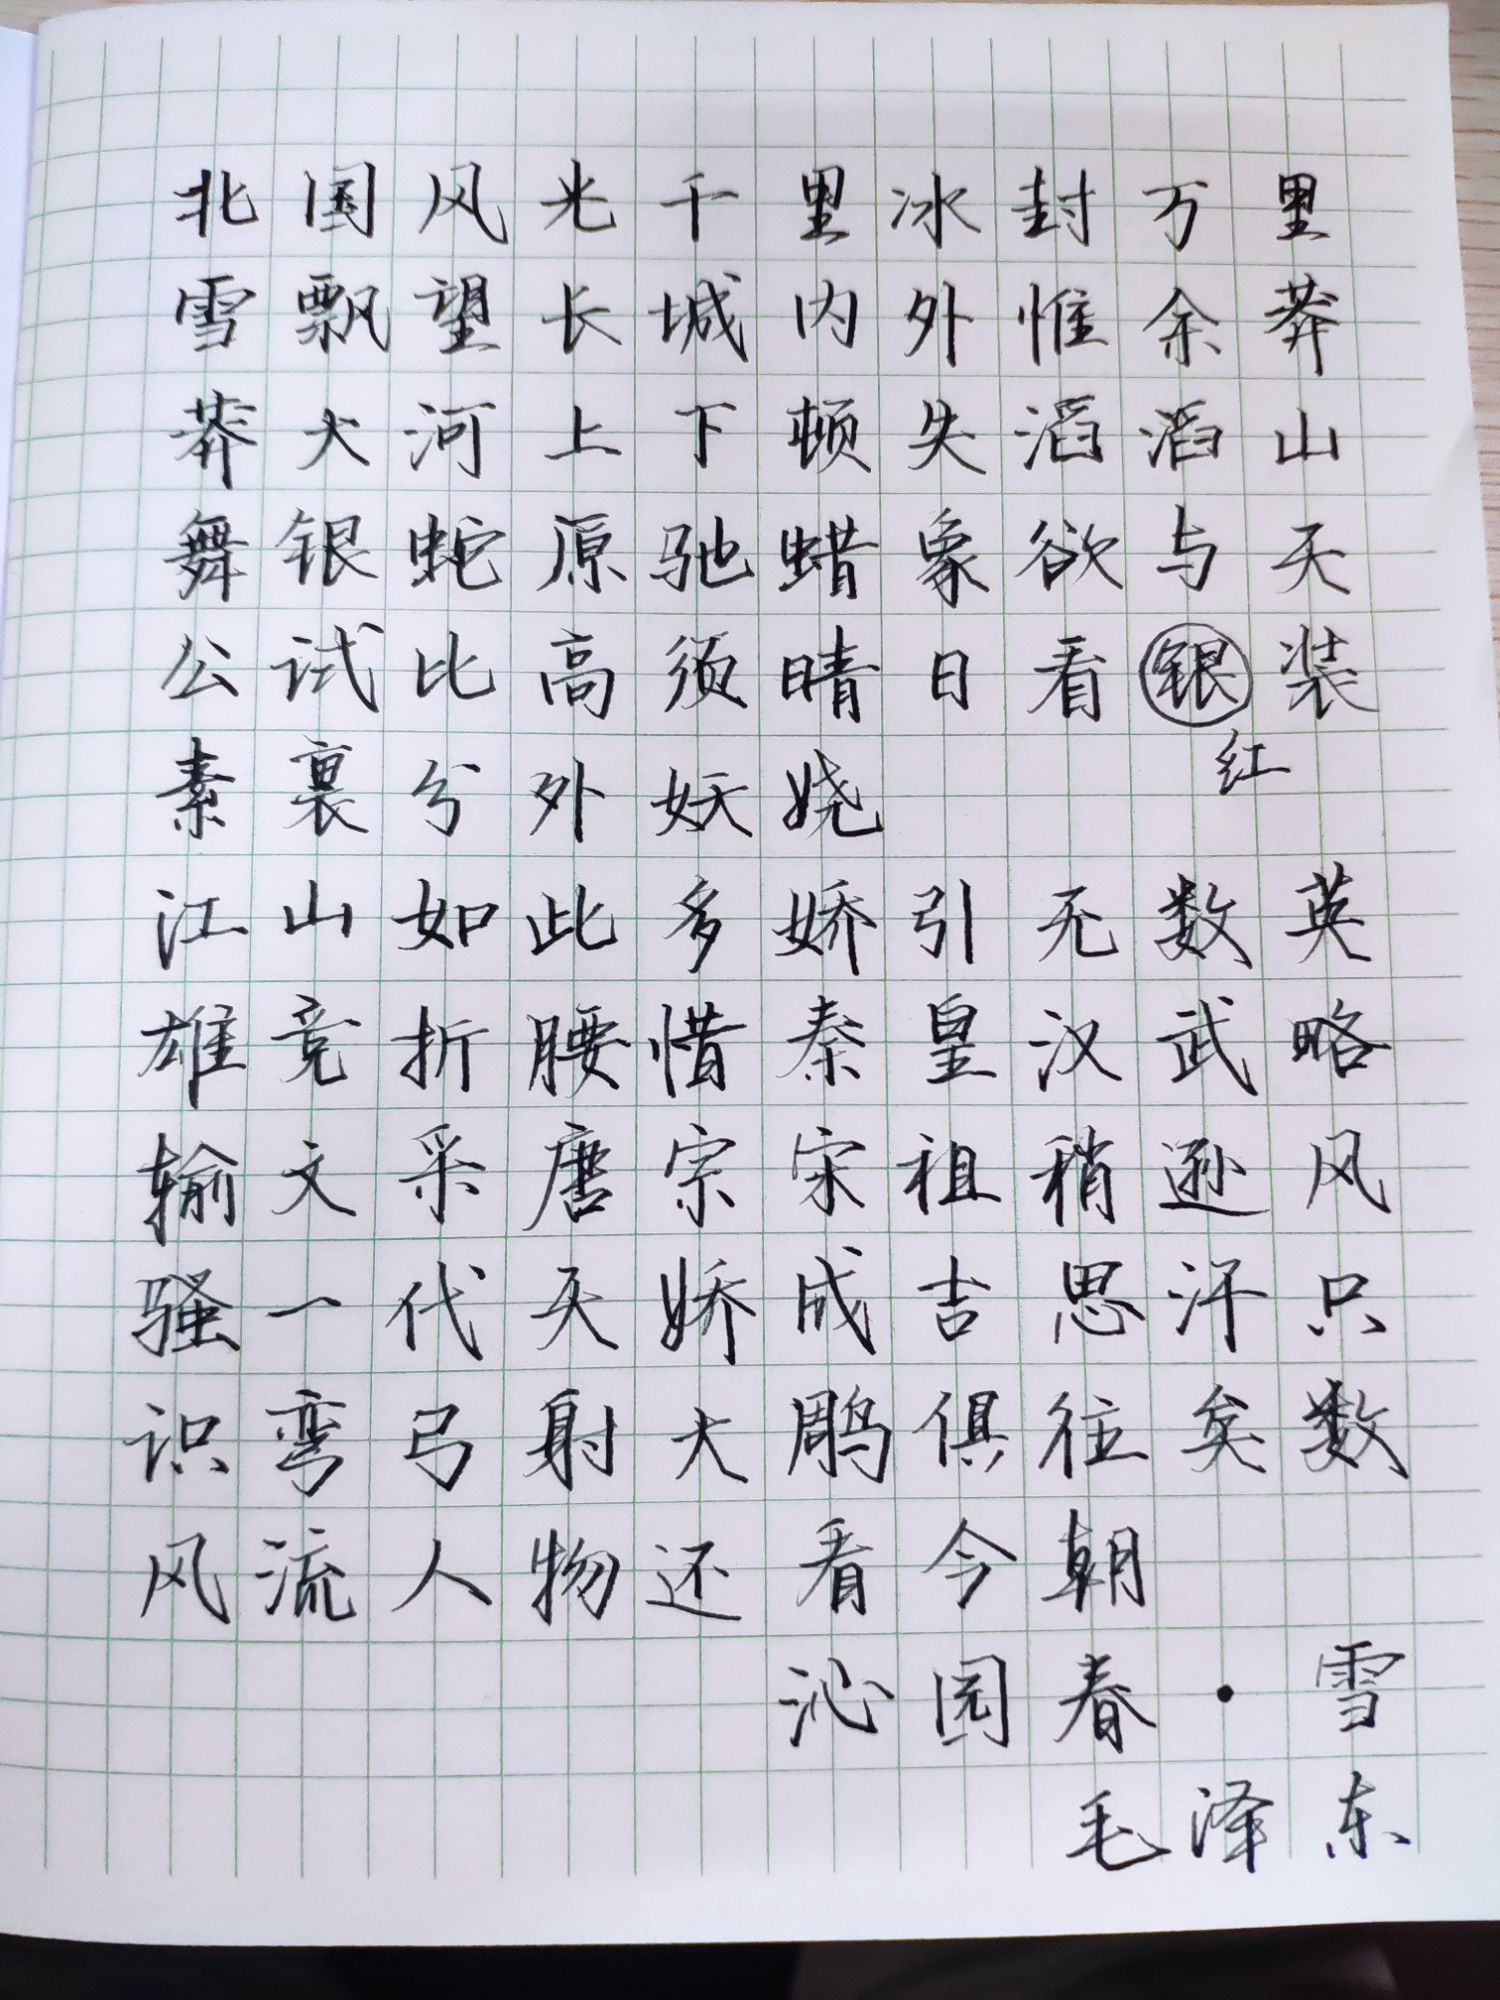 北国风光千里冰封万里
雪飘望长城内外惟余莽
莽大河上下顿失滔滔山
舞银蛇原驰蜡象欲与天
公试比高须晴日看银装
红
素裹分外妖娆
江山如此多娇引无数英
雄竞折腰惜秦皇汉武略
输文采唐宗宋祖稍逊风
骚一代天娇成吉思汗只
识弯弓射大鵰俱往矣数
风流人物还看今朝
沁园春·雪
毛泽东